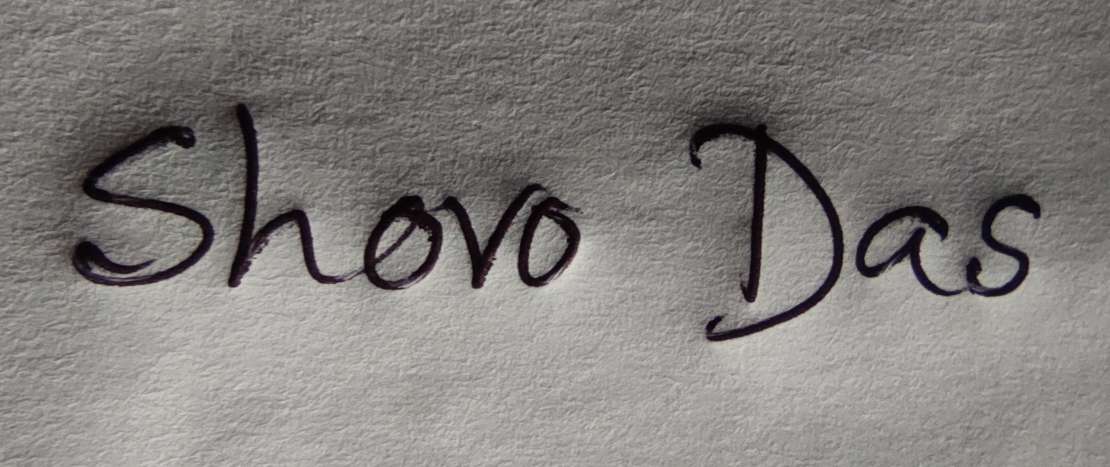 Shovo Das